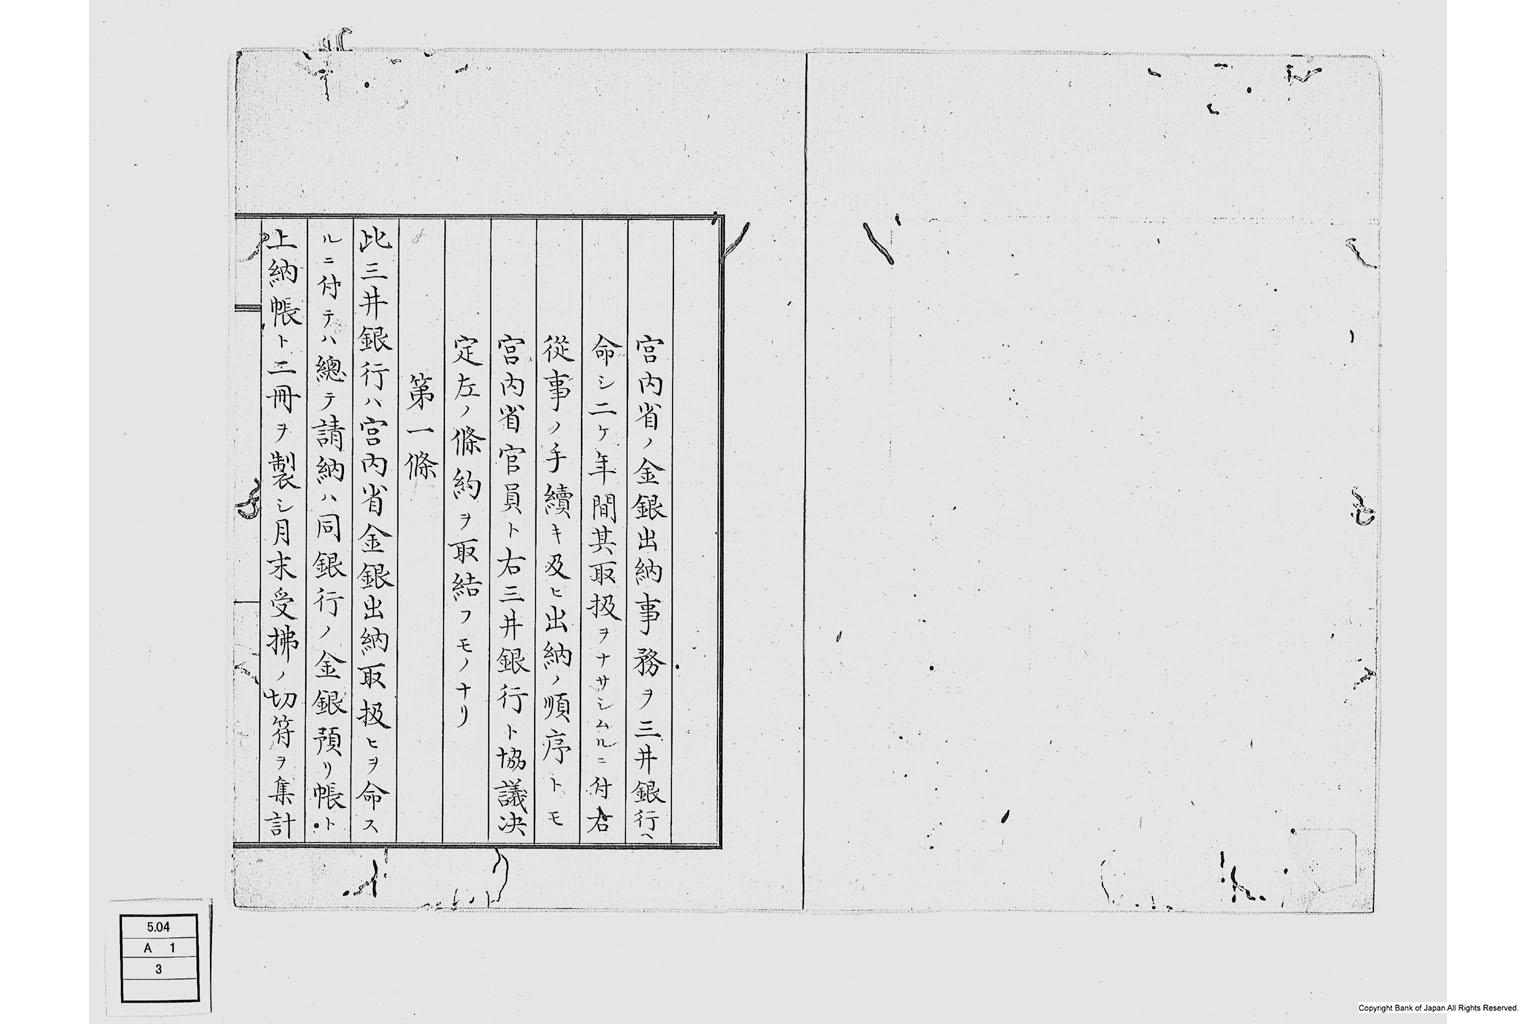 宮内省ノ金銀出納事務ヲ三井銀行ヘ
命シ二ケ年間其取扱ヲナサシムルニ付右
從事ノ手續キ及ヒ出納ノ順序トモ
宮内省官員ト右三井銀行ト協議决
定左ノ條約ヲ取結フモノナリ
第一條
此三井銀行ハ宮内省金銀出納取扱ヒヲ命ス
ルニ付テハ總テ請納ハ同銀行ノ金銀預リ帳ト
上納帳ト二冊ヲ製シ月末受拂ノ切符ヲ集計
5.04
A 1
3
Copyright Bank of Japan All Rights Reserved.